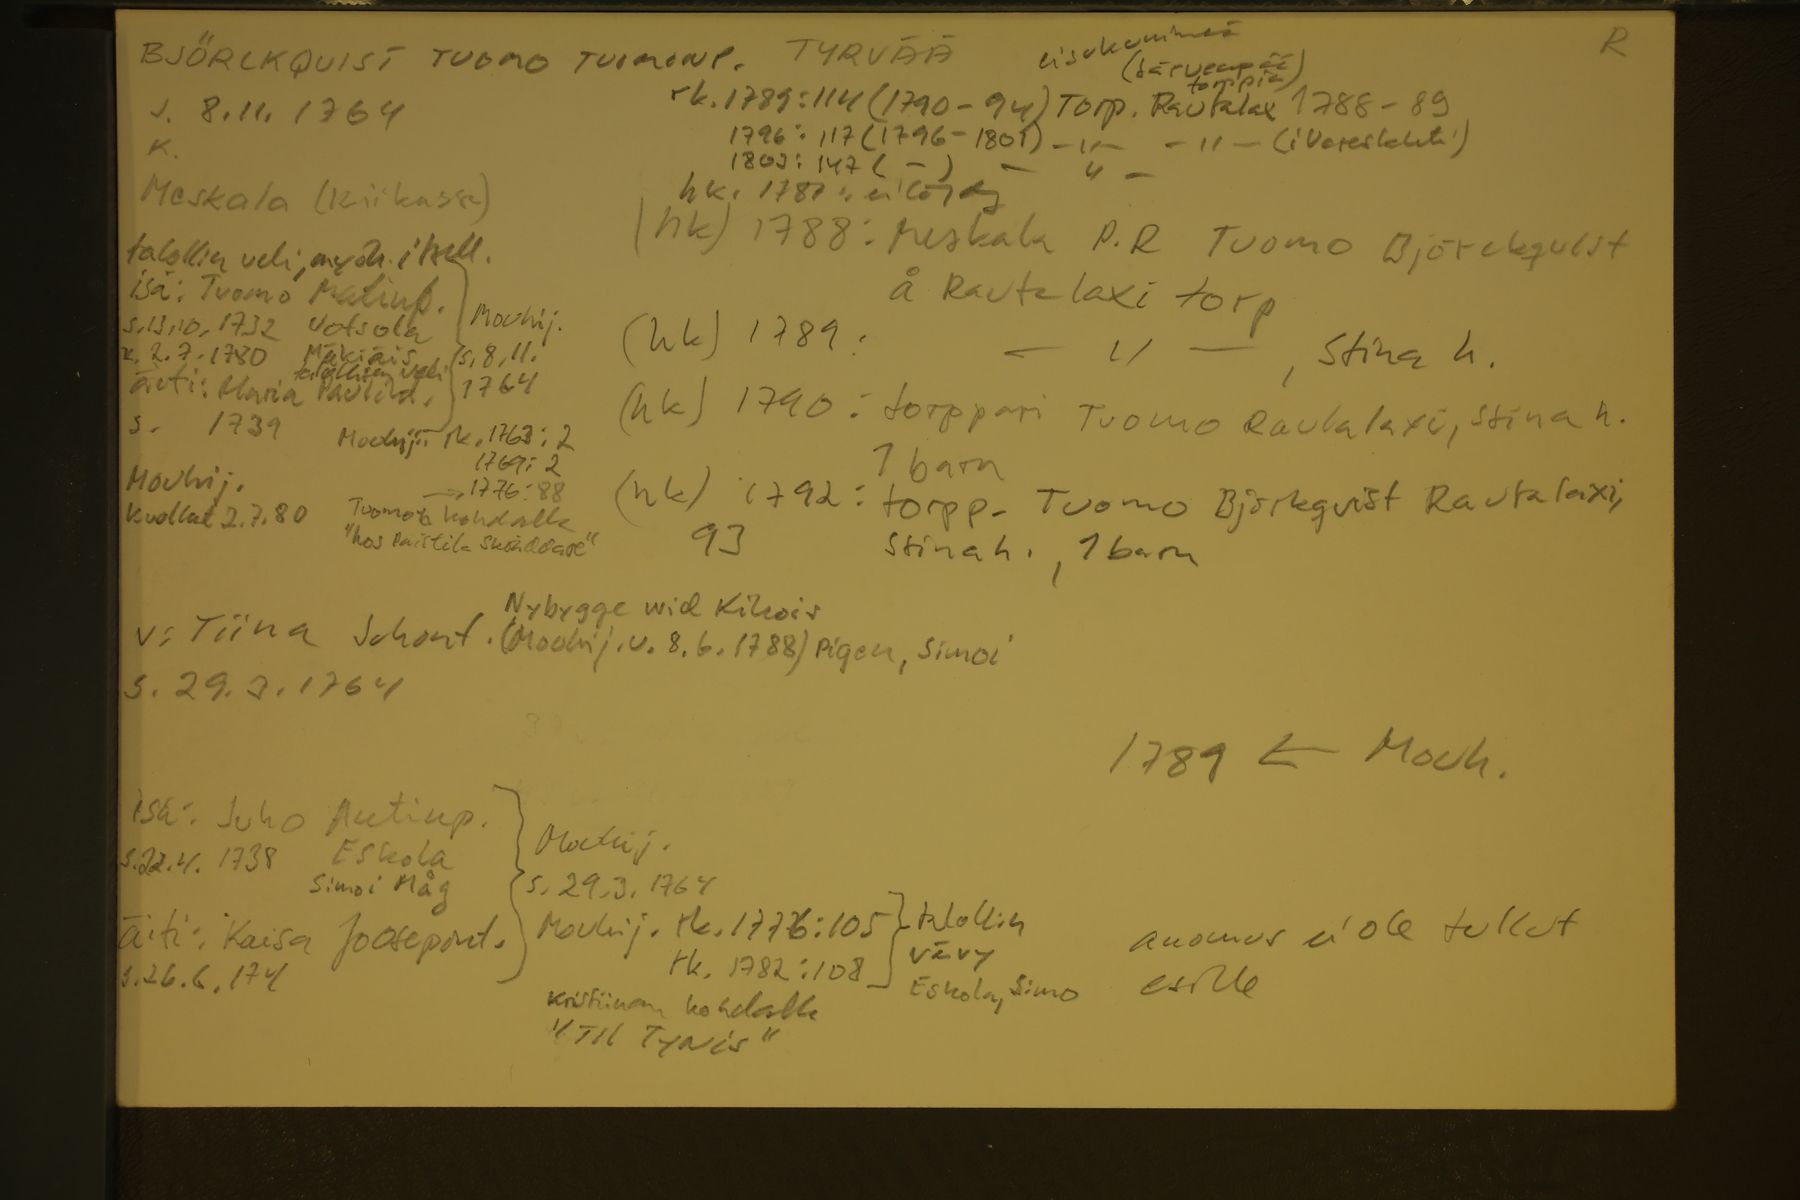 BJÖRCKQUIST TUOMO TUOMONP. TYRVÄÄ
R
s. 8.11. 1764
K.
Meskala (Kiikassa)
ei sukunimeä
rk. 1789:114 (1790-94) Torp. Rautalax 1788-89
1796: 117 (1796-1801) -"- -"-
1803: 147 ( - ) - " -
hk. 1787: ei löydy
(hk) 1788: Meskala D.R Tuomo Björckqvist
å Rautalaxi torp
(hk) 1789: - " - , Stina h.
(hk) 1790: torppari Tuomo Rautalaxi, Stina h.
1 barn
(hk) 1792: torpp. Tuomo Björkqvist Rautalaxi,
93 Stina h. , 1 barn
talollin veli, myöh. itsell.
isä: Tuomo Matinp.
s. 13.10. 1732 Uotsola
k. 2.7.1780 Mäkiäis
talollisen veli
äiti: Maria Paulint.
s. 1739
Mouhij.
s. 8.11.
1764
Mouhij: rk. 1763: 2
1769: 2
→ 1776: 88
Tuomon kohdalla
"hos Paistila Skräddare"
Mouhij.
kuollut 2.7.80
v: Tiina Juhont. (Mouhij. v. 8.6.1788) Pigen, Simoi
Nybygge wid Kikois
s. 29.3.1764
1789 ← Mouh.
isä: Juho Antinp.
s. 22.4. 1738 Eskola
Simoi Måg
äiti: Kaisa Joosepint.
s. 26.6. 174
Mouhij.
s. 29.3. 1764
Mouhij. rk. 1776:105
rk. 1782:108
talollin
vävy
Eskola, Simo
Kristiinan kohdalla
"Till Tyrvis"
anomus ei ole tullut
esille